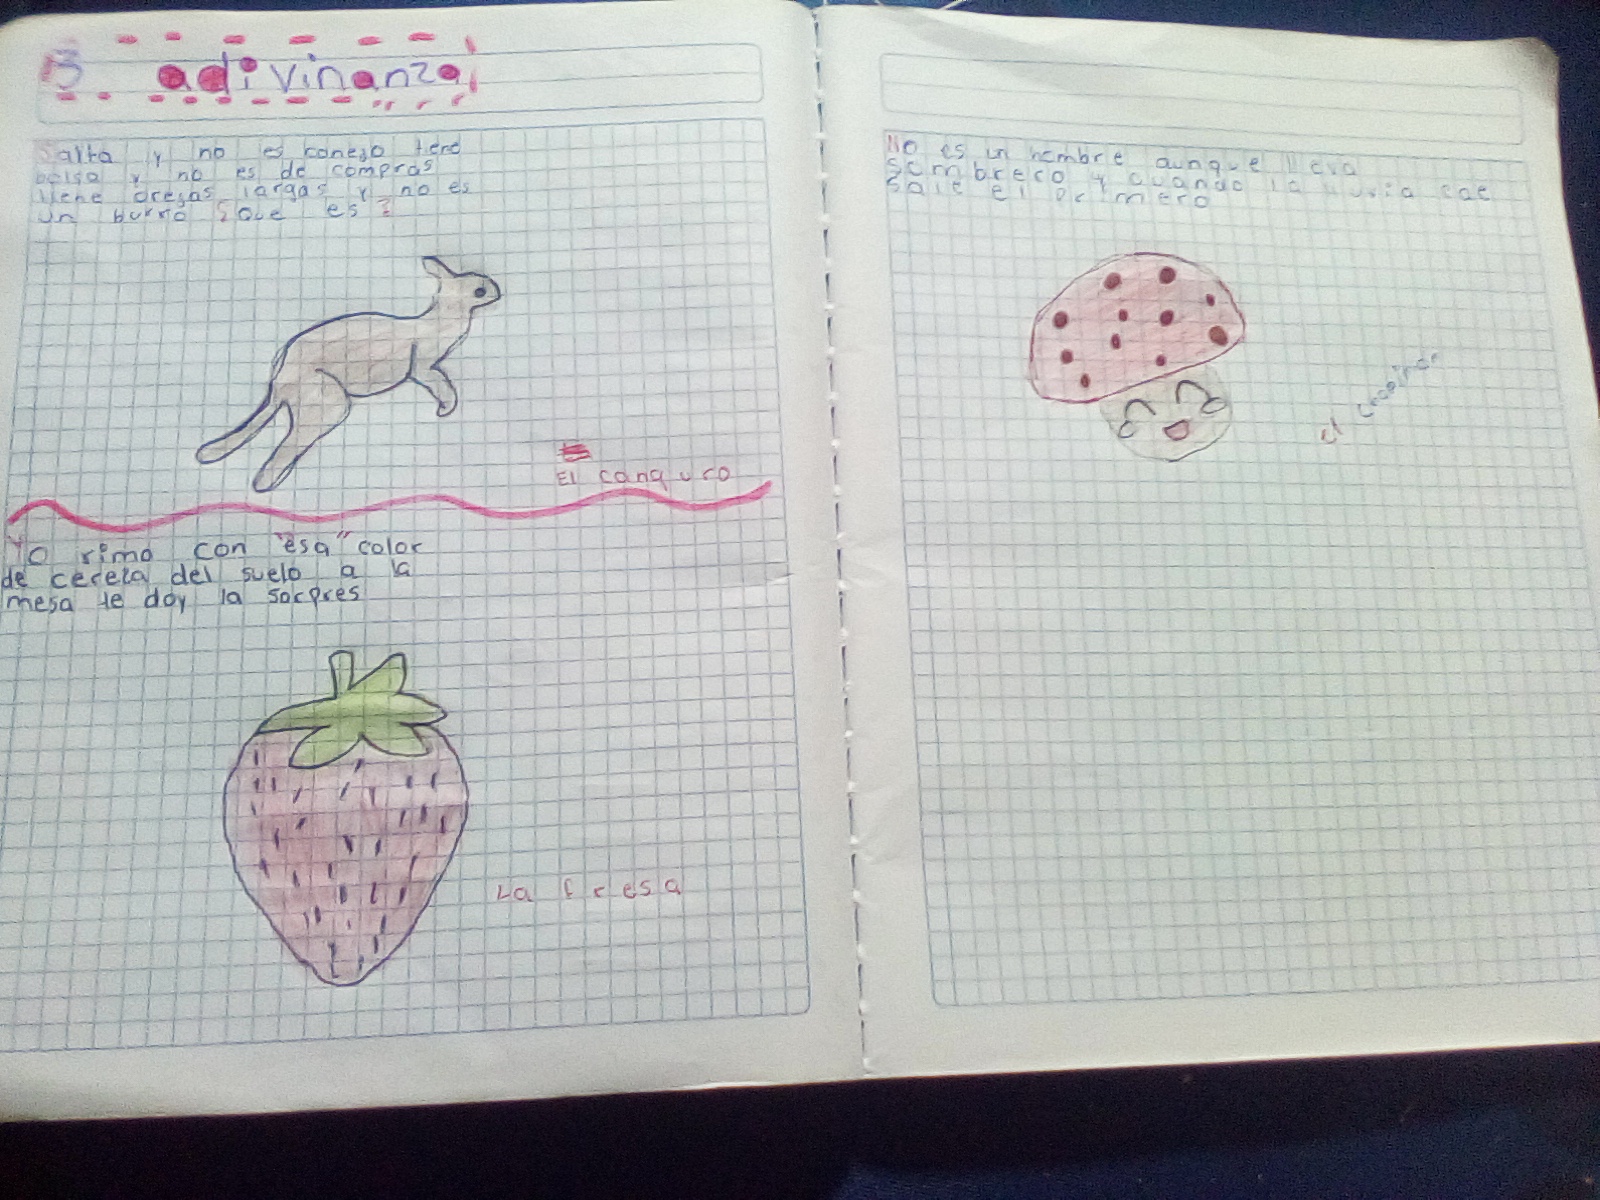 3 adivinanza
Salta y no es conejo tiene
bolsa y no es de compras
tiene orejas largas y no es
un burro ¿que es?
El canguro
Yo rimo con "esa" color
de cereza del suelo a la
mesa te doy la sorpres
La fresa
No es un hombre aunque lleva
sombrero y cuando la lluvia cae
sale el primero
el